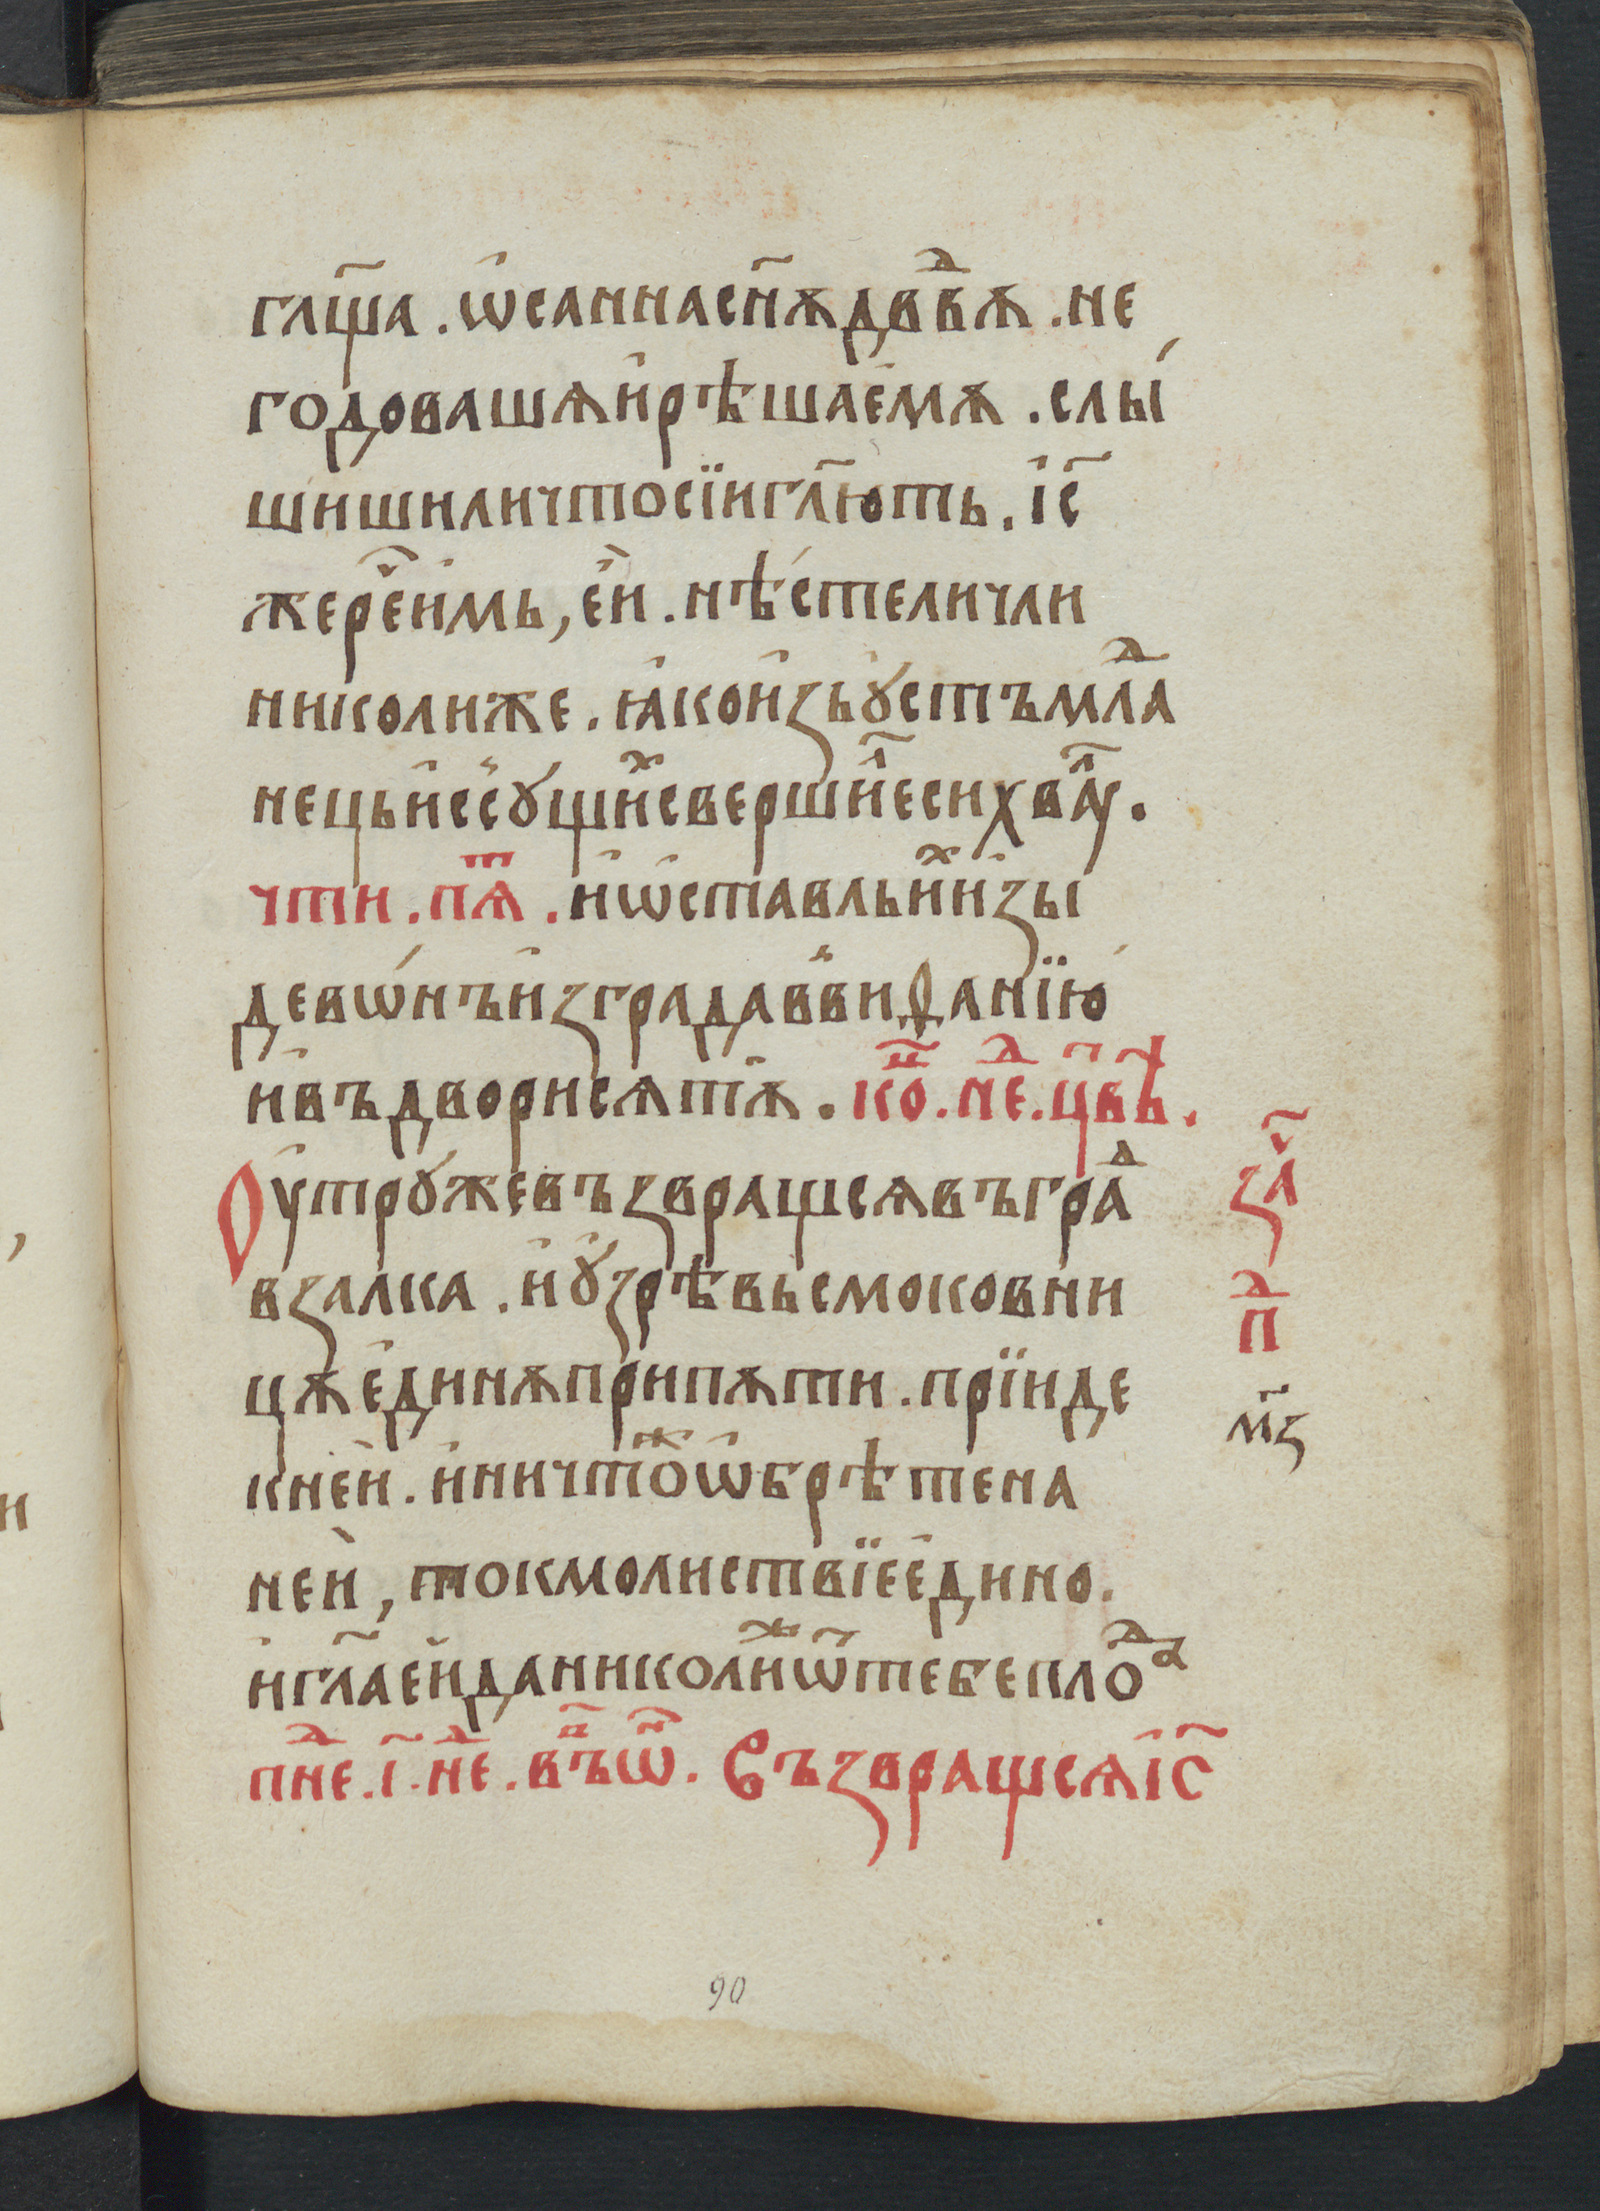 гл҃ща . ѡ҆санна сн҃ѫ дв҃двѫ . не
годовашѧ и҆ рѣша е҆мѫ . слы́
ши́ши ли что сїи гл҃ють . і҆с҃
же рече҆ и҆мь , е҆и . нѣ́сте ли чли
николиже . ꙗ҆ко и҆зь ꙋ҆стъ млад҃а
нець и҆ с̾сꙋщих҃ сверши́л҃ еси хвалꙋ .
чти . пѧт҃ . и҆ ѡ҆ставль и҆х и҆зы
де во́нъ и҆з града в̾ виѳанїю́
и҆ въдвори сѧ тꙋ . ко҃н . нед҃ . цв҃ѣ .
Оу҆трꙋ же възвращсѧ въ град
взалка . и҆ ꙋ҆зрѣвь смоковни
цѫ е҆динѫ при пѫти . прїиде
к не́и . и҆ ничтож ѡ҆брѣте на
не́и , токмо листвїе е҆дино .
и҆ гл҃а е҆и да николиж ѿ тебе плод
пнед҃ . і҃ . нед҃ . въ ѡ҃н . Възвращсѧ і҆с҃
зач҃
пд҃
мз҃
90